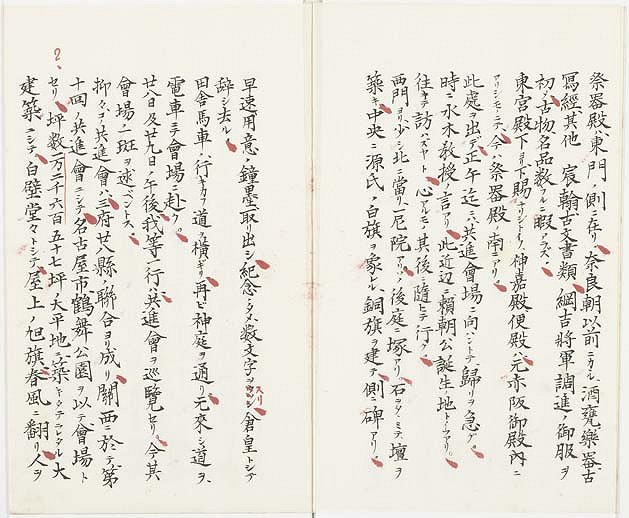 祭器殿ハ東門ノ側ニ在リ奈良朝以前ニカヽル酒甕樂器古
寫經其他　宸翰古文書類、綱吉將軍調進ノ御服ヲ
初メ古物名品數フルニ暇アラズ、
東宮殿下ヨリ下賜セラレシトイフ伸嘉殿便殿ハ元赤阪御殿内ニ
アリシモノニテ、今ハ祭器殿ノ南ニアリ、
此處ヲ出デ正午迄ニハ共進會場ニ向ハントテ歸リヲ急グ、
時ニ水木教授ノ言アリ此近辺ニ賴朝公誕生地トイフアリ、
往キテ訪ハズヤト、心アルモノ其後ニ隨ヒテ行ク、
西門ヨリ少シ北ニ當リ一尼院アリ、後庭ニ塚アリ石ヲタヽミテ壇ヲ
築キ中央ニ源氏ノ白旗ヲ象レル銅旗ヲ建テ側ニ碑アリ、
早速用意ノ鐘墨取リ出シ紀念ノタメ數文字ヲスリ倉皇トシテ
辭シ去ル
田舎馬車ノ行キカフ道ヲ横ギリ再ビ神庭ヲ通リ元來シ道ヲ、
電車ニテ會場ニ赴ク。
廿八日及廿九日ノ午後我等一行ハ共進會ヲ巡覽セリ。今其
會場ノ一斑ヲ述ベントス、
抑々コノ共進會ハ三府廿八縣ノ聯合ヨリ成リ關西ニ於テ第
十回ノ共進會ニシテ名古屋市鶴舞公園ヲ以テ會場ト
セリ、坪數一万二千六百五十七坪ノ大平地ニ築キタテラレタル大
建築ニシテ白壁堂々トシテ屋上ノ旭旗春風ニ翻リ人ヲ
2、